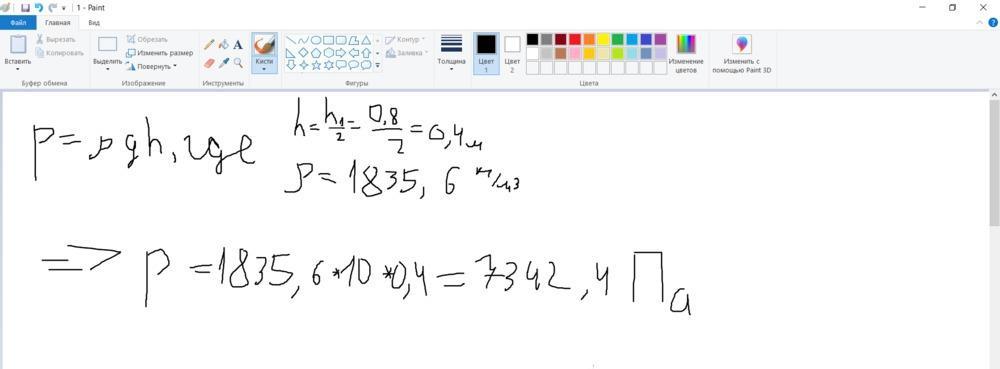 1 - Paint
Файл Главная Вид
Вставить
Вырезать
Копировать
Буфер обмена
Выделить
Обрезать
Изменить размер
Повернуть
Изображение
A
Инструменты
Кисти
Контур
Заливка
Фигуры
Толщина
Цвет 1
Цвет 2
Изменение цветов
Цвета
Изменить с помощью Paint 3D
p=ρgh, где
h=h1/2=0,8/2=0,4м
ρ=1835,6 кг/м3
=> p=1835,6*10*0,4=7342,4 Па